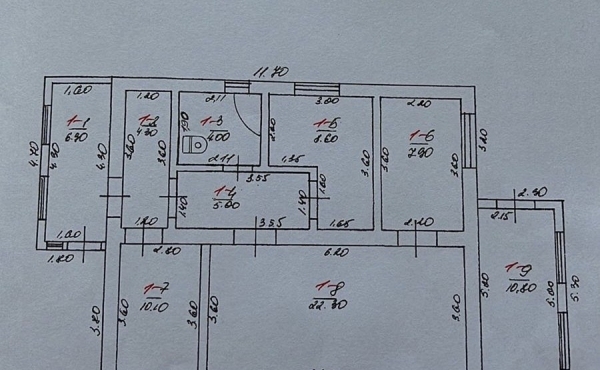 11.70
1.60
1.20
2.11
3.00
2.20
1-1
6.90
1-2
4.30
1-3
4.00
1-5
8.60
1-6
7.90
4.70
4.30
4.30
3.60
3.60
2.20
3.60
3.60
3.60
3.20
2.11
1.35
3.55
1-4
5.00
1.40
1.40
1.60
1.60
1.20
3.55
1.65
2.20
1.80
2.80
6.20
2.15
2.30
1-7
10.10
1-8
22.30
1-9
10.80
3.70
3.60
3.60
3.60
3.60
5.00
5.00
5.30